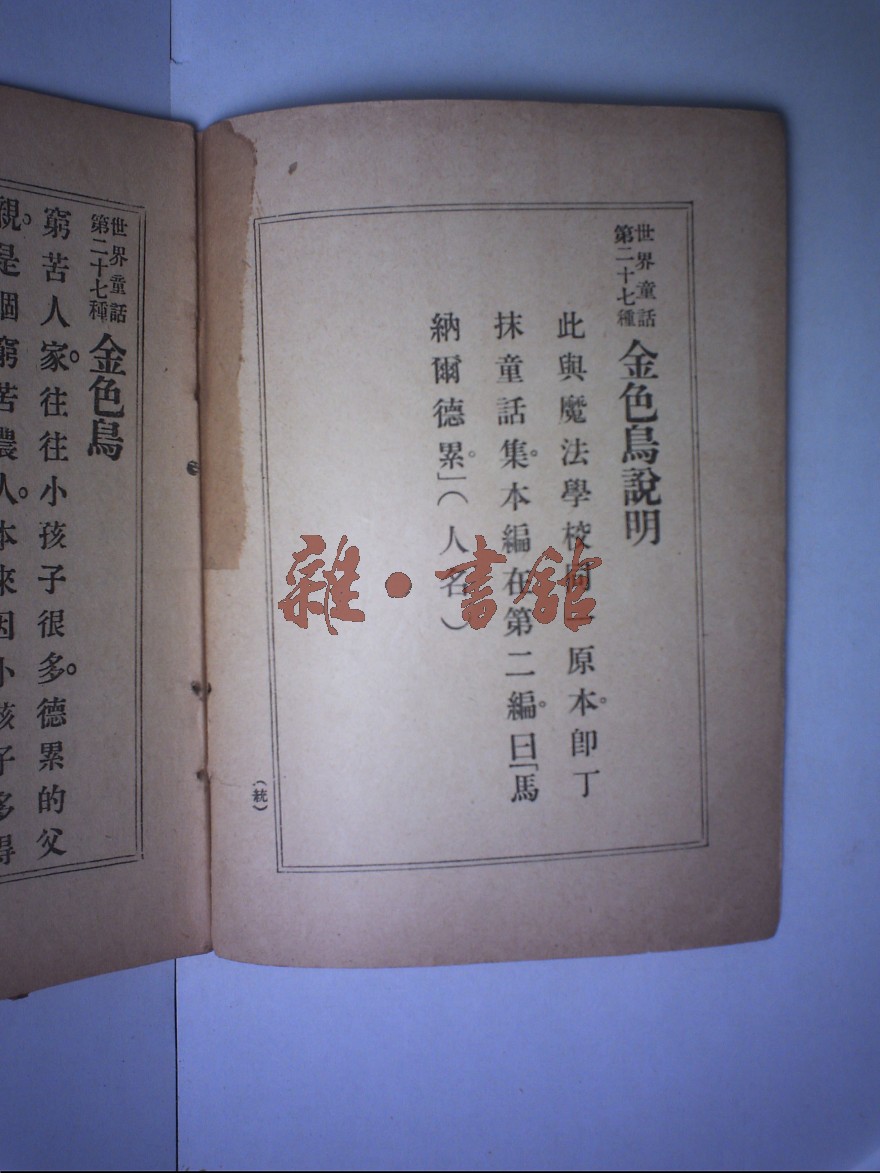 世界童話
第二十七種
金色鳥說明
此與魔法學校同一原本。卽丁
抹童話集。本編在第二編。曰「馬
納爾德累。」（人名）
（統）
世界童話
第二十七種
金色鳥
窮苦人家。往往小孩子很多。德累的父
親。是個窮苦農人。本來因小孩子多得
雜·書館